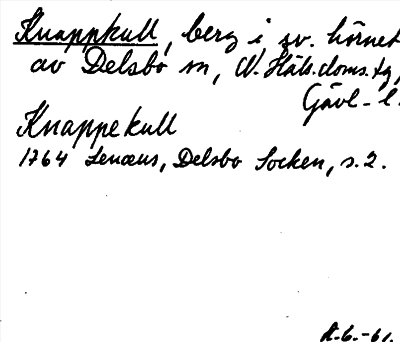 Knappkull, berg i sv. hörnet
av Delsbo sn, N. Häls. doms. tg,
Gävl. l.
Knappekull
1764 Lenæus, Delsbo Socken, s. 2.